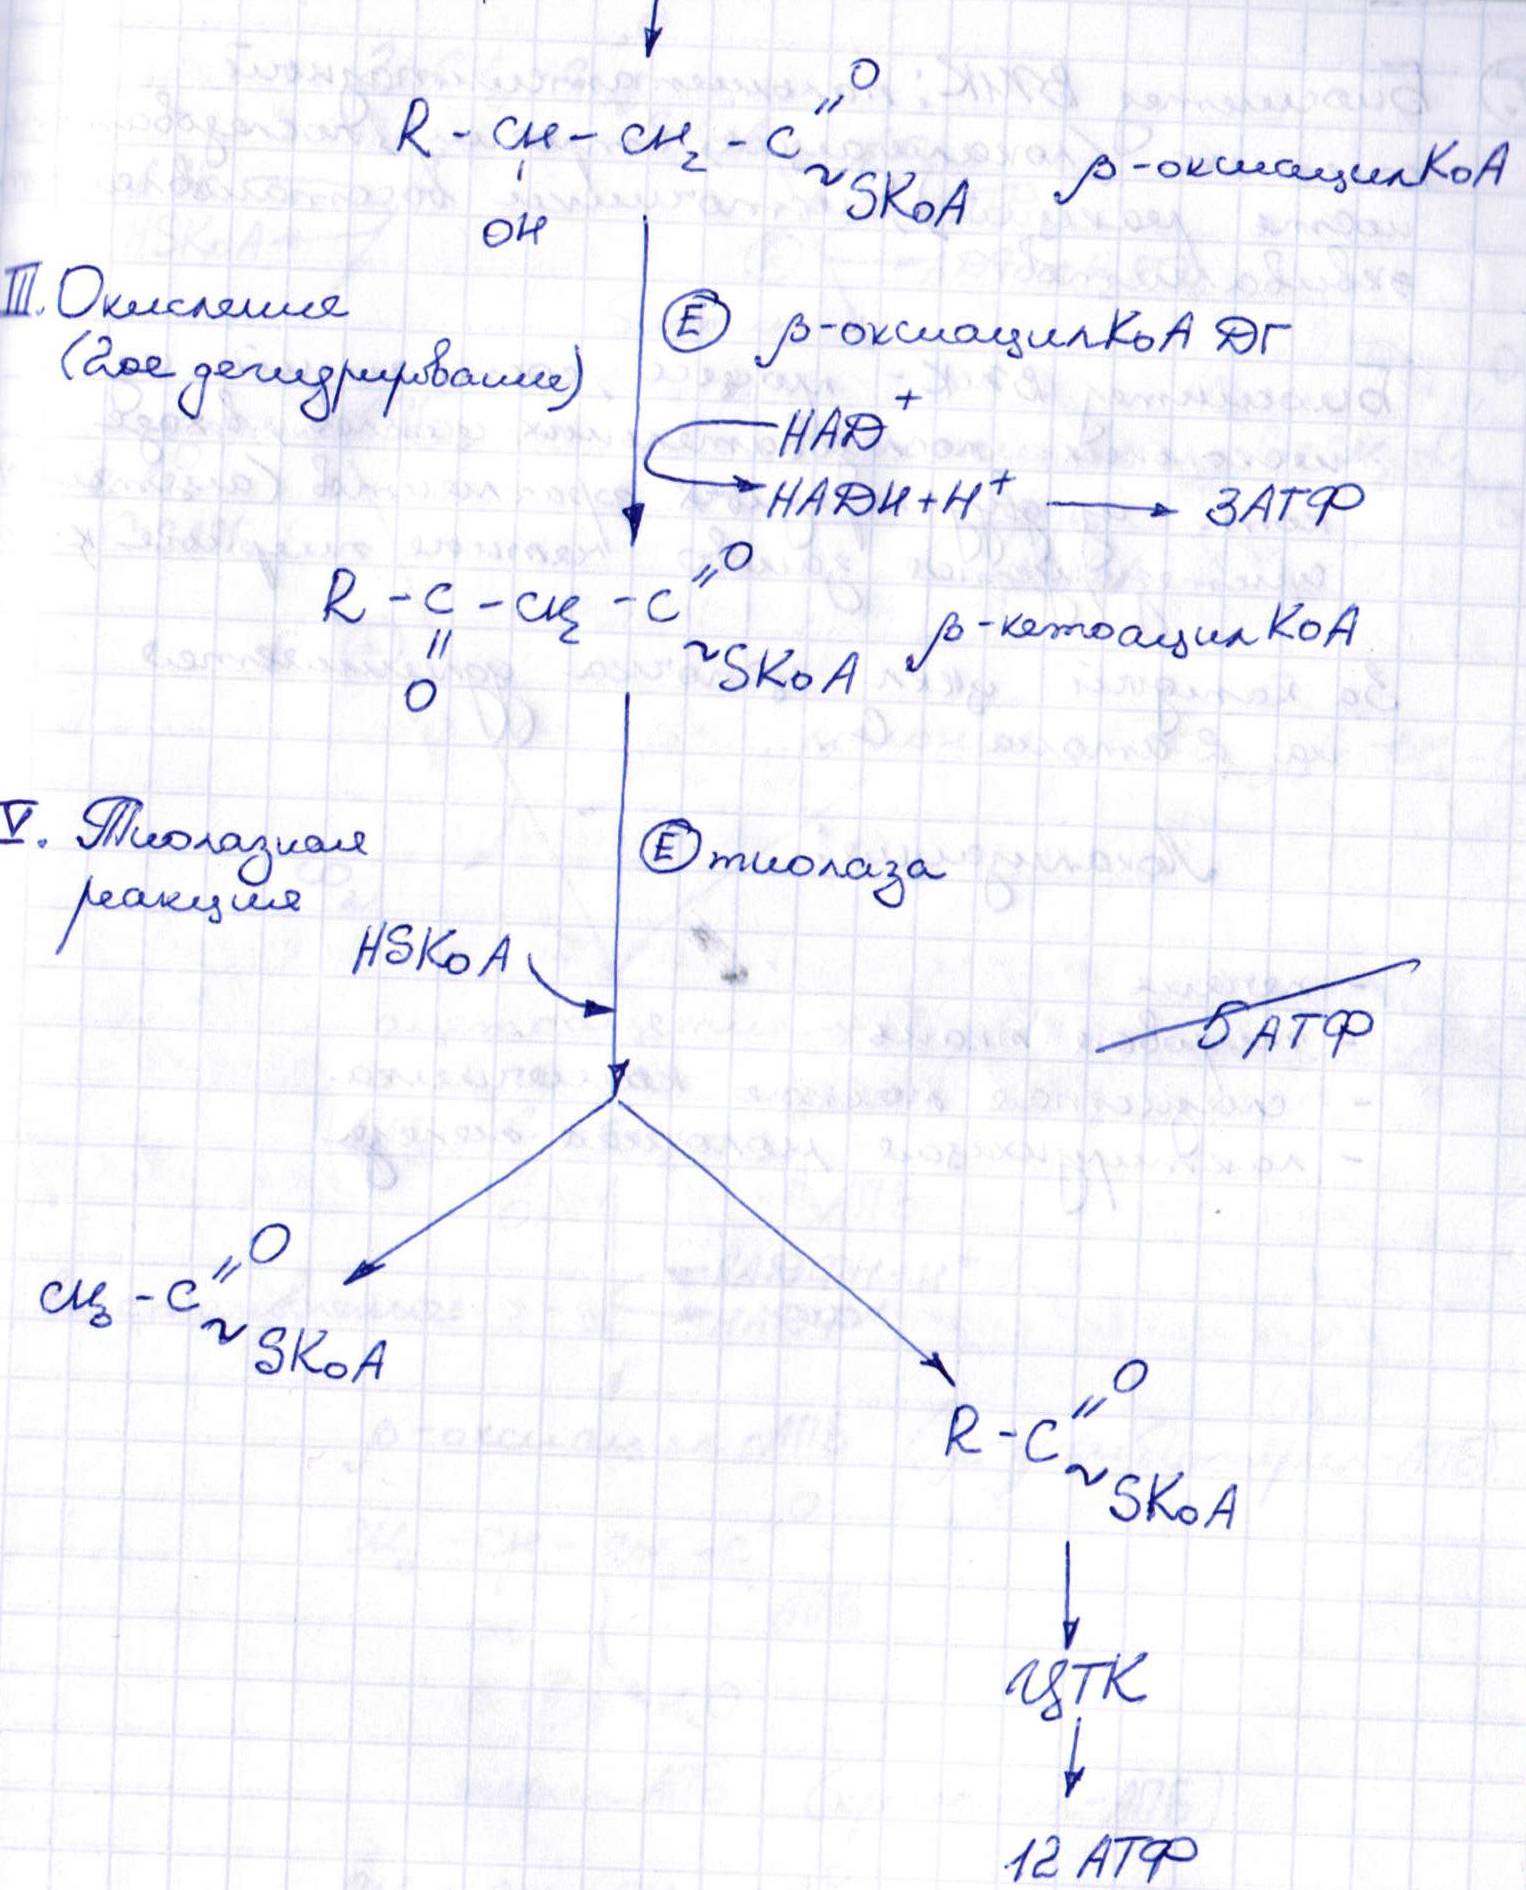 R - CH - CH₂ - C =O
~SKoA
OH
β-оксиацилKoA
III. Окисление
(2ое дегидрирование)
Ⓔ β-оксиацилKoA ДГ
НАД⁺
НАДН+Н⁺ → 3АТФ
R - C - CH₂ - C =O
~SKoA
O
β-кетоацилKoA
V. Тиолазная
реакция
Ⓔ тиолаза
HSKoA
5 АТФ
CH₃ - C =O
~SKoA
R - C =O
~SKoA
ЦТК
12 АТФ